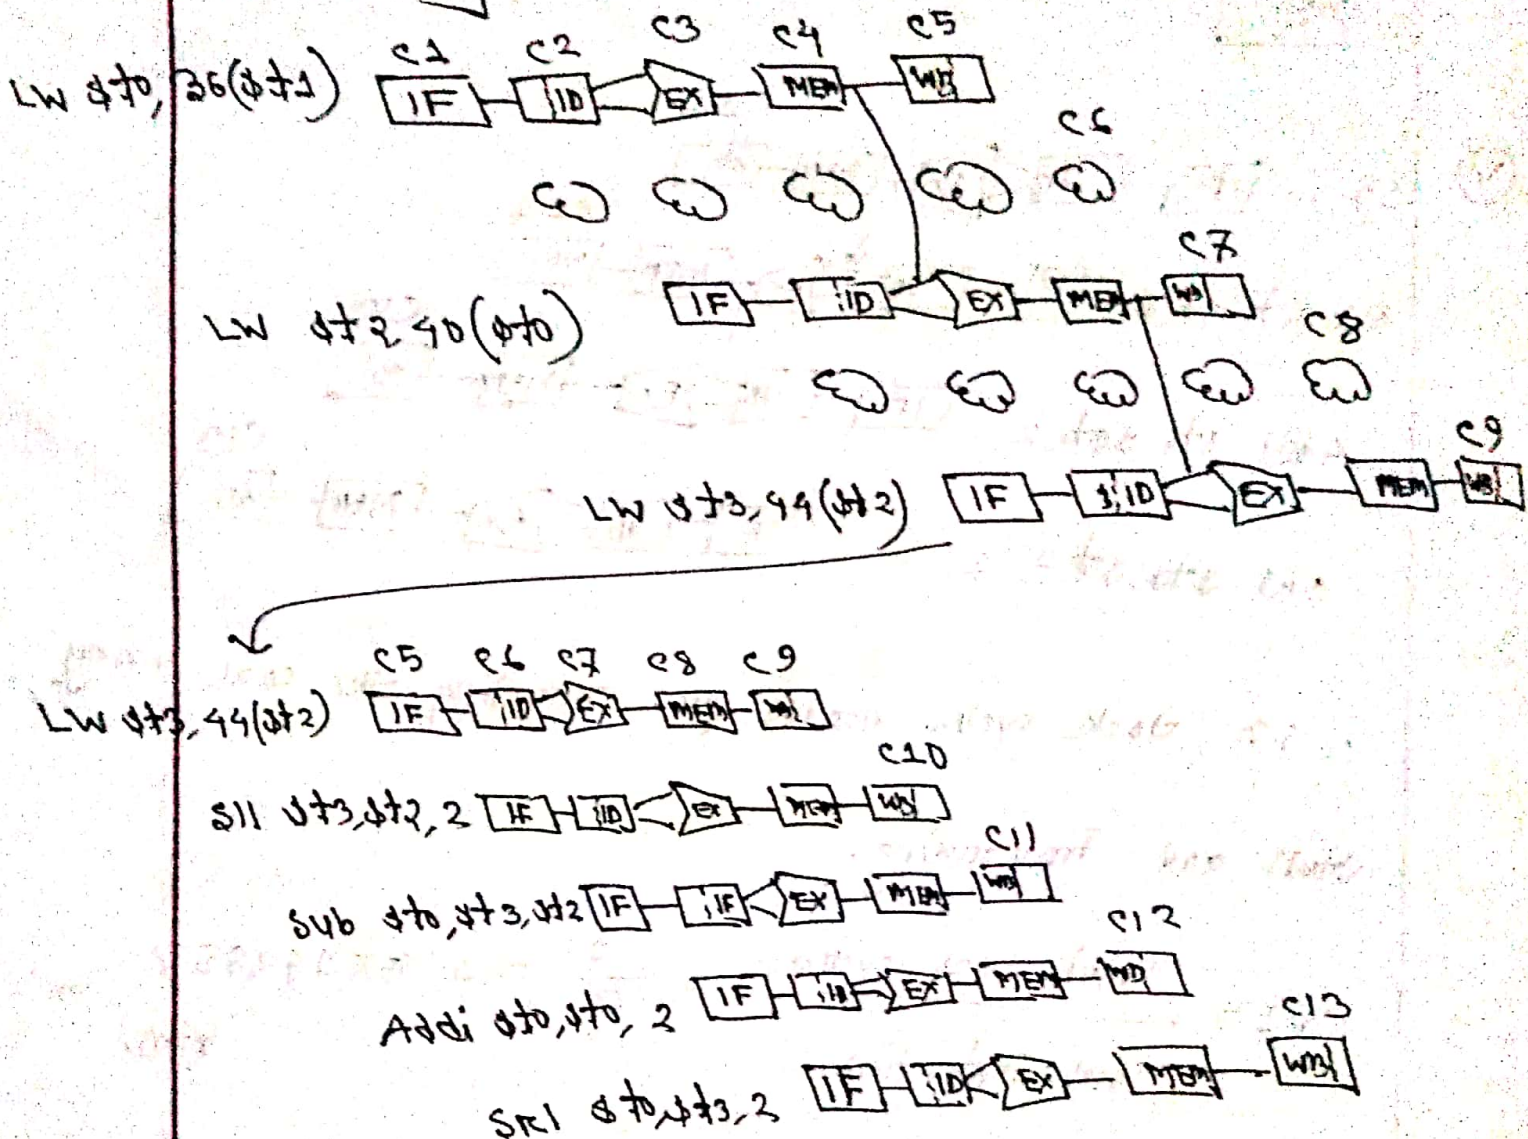 C1 C2 C3 C4 C5
LW $t0, 36($t1) IF ID EX MEM WB
C6
C7
LW $t2 40($t0) IF ID EX MEM WB
C8
C9
LW $t3, 44($t2) IF ID EX MEM WB
C5 C6 C7 C8 C9
LW $t3, 44($t2) IF ID EX MEM WB
C10
Sll $t3, $t2, 2 IF ID EX MEM WB
C11
Sub $t0, $t3, $t2 IF IF EX MEM WB
C12
Addi $t0, $t0, 2 IF ID EX MEM WB
C13
Srl $t0, $t3, 2 IF ID EX MEM WB